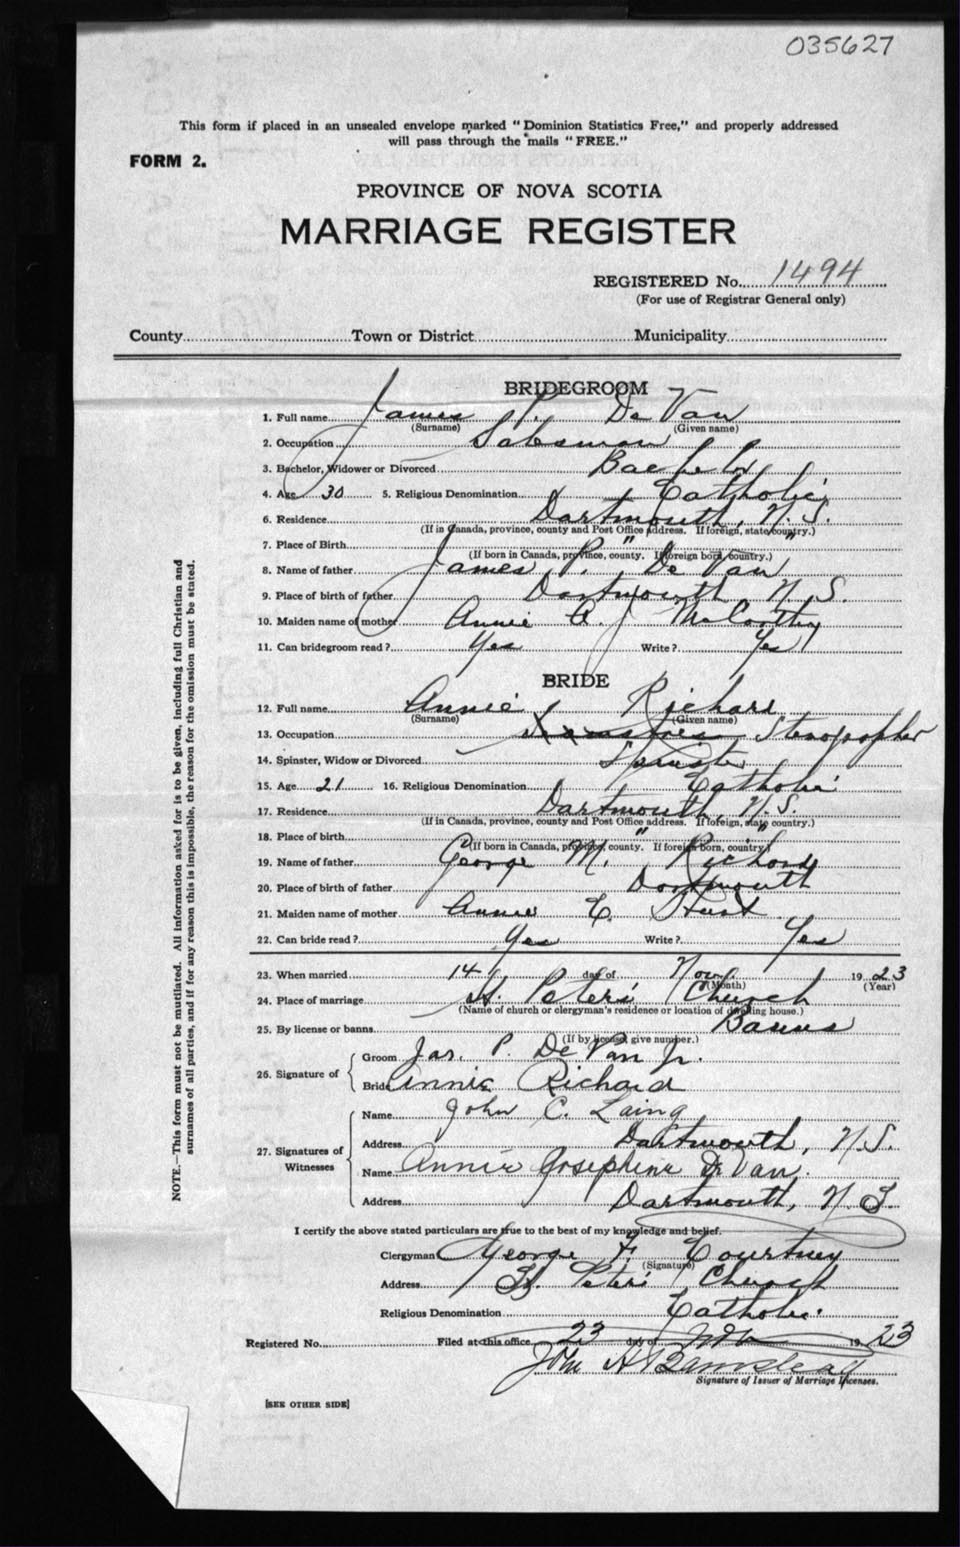 035627
This form if placed in an unsealed envelope marked "Dominion Statistics Free," and properly addressed
will pass through the mails "FREE."
FORM 2.
PROVINCE OF NOVA SCOTIA
MARRIAGE REGISTER
REGISTERED No. 1494
(For use of Registrar General only)
County Town or District Municipality
BRIDEGROOM
1. Full name James P. De Van
(Surname) (Given name)
2. Occupation Salesman
3. Bachelor, Widower or Divorced Bachelor
4. Age 30 5. Religious Denomination Catholic
6. Residence Dartmouth, N. S.
(If in Canada, province, county and Post Office address. If foreign, state country.)
7. Place of Birth " "
(If born in Canada, province, county. If foreign born, country.)
8. Name of father James P. De Van
9. Place of birth of father Dartmouth N. S.
10. Maiden name of mother Annie A. McCarthy
11. Can bridegroom read? Yes Write? Yes
BRIDE
12. Full name Annie Richard
(Surname) (Given name)
13. Occupation Stenographer
14. Spinster, Widow or Divorced Spinster
15. Age 21 16. Religious Denomination Catholic
17. Residence Dartmouth, N. S.
(If in Canada, province, county and Post Office address. If foreign, state country.)
18. Place of birth " "
(If born in Canada, province, county. If foreign born, country)
19. Name of father George M. Richard
20. Place of birth of father Dartmouth
21. Maiden name of mother Annie E.
22. Can bride read? Yes Write? Yes
23. When married 14 day of Nov. 1923
(Month) (Year)
24. Place of marriage St. Peter's Church
(Name of church or clergyman's residence or location of dwelling house.)
25. By license or banns Banns
(If by license, give number.)
26. Signature of Groom Jas. P. De Van Jr.
Bride Annie Richard
27. Signatures of Witnesses Name John C. Laing
Address Dartmouth, N.S.
Name Annie Josephine De Van.
Address Dartmouth, N. S.
I certify the above stated particulars are true to the best of my knowledge and belief.
Clergyman George F. Courtney
(Signature)
Address St. Peter's Church
Religious Denomination Catholic
Registered No. Filed at this office 23 day of Nov 1923
John H
Signature of Issuer of Marriage Licenses.
[SEE OTHER SIDE]
NOTE.—This form must not be mutilated. All information asked for is to be given, including full Christian and
surnames of all parties, and if for any reason this is impossible, the reason for the omission must be stated.